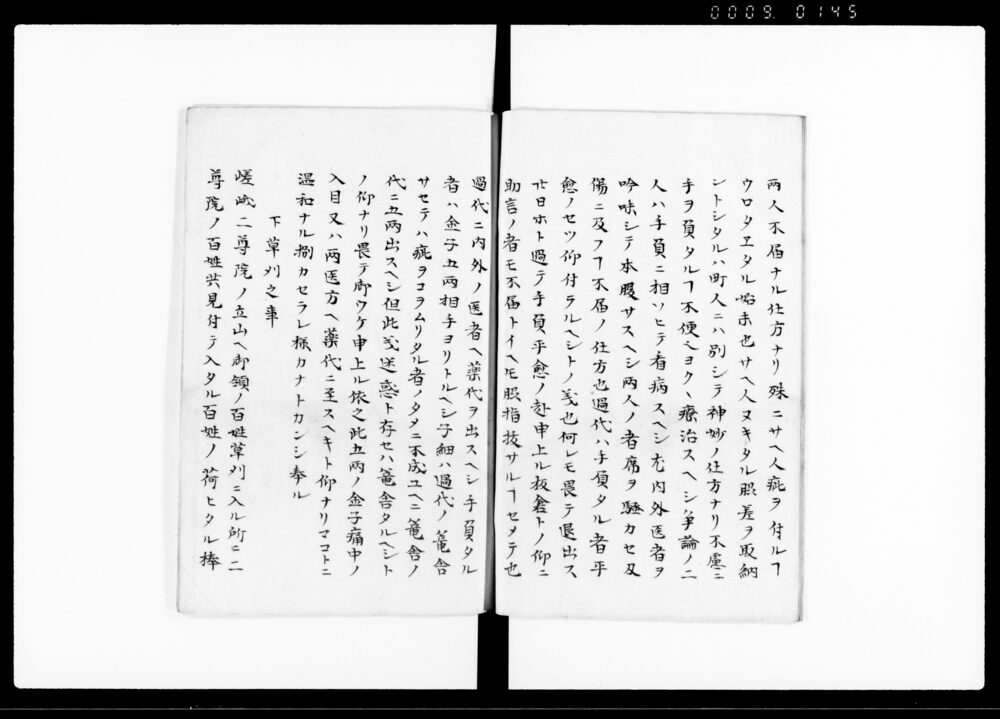 0009. 0145
両人不届ナル仕方ナリ殊ニサヘ人疵ヲ付ルヿ
ウロタヱタル始末也サヘ人ヌキタル脇差ヲ取納
シトシタルハ町人ニハ別シテ神妙ノ仕方ナリ不慮ニ
手ヲ負タルヿ不便ニヨク〱療治スヘシ争論ノ二
人ハ手負ニ相ソヒテ看病スヘシ尤内外医者ヲ
吟味シテ本服サスヘシ両人ノ者席ヲ騒カセ刄
傷ニ及フヿ不届ノ仕方也過代ハ手負タル者平
愈ノセツ仰付ラルヘシトノ義也何レモ畏テ退出ス
廿日ホト過テ手負平愈ノ赴申上ル板倉トノ仰ニ
助言ノ者モ不届トイヘ𪜈脇指抜サルヿセメテ也
過代ニ内外ノ医者ヘ薬代ヲ出スヘシ手負タル
者ハ金子五両相手ヨリトルヘシ子細ハ過代ノ篭舎
サセテハ疵ヲコウムリタル者ノタメニ不成ユヘニ篭舎ノ
代ニ五両出スヘシ但此義迷惑ト存セハ篭舎タルヘシト
ノ仰ナリ畏テ御ウケ申上ル依之此五両ノ金子痛中ノ
入目又ハ両医方ヘ薬代ニ至スヘキト仰ナリマコトニ
温和ナル捌カセラレ様カナトカンシ奉ル
下草刈之事
嵯峨二尊院ノ立山ヘ御領ノ百姓草刈ニ入ル所ニ二
尊院ノ百姓共見付テ入タル百姓ノ荷ヒタル棒